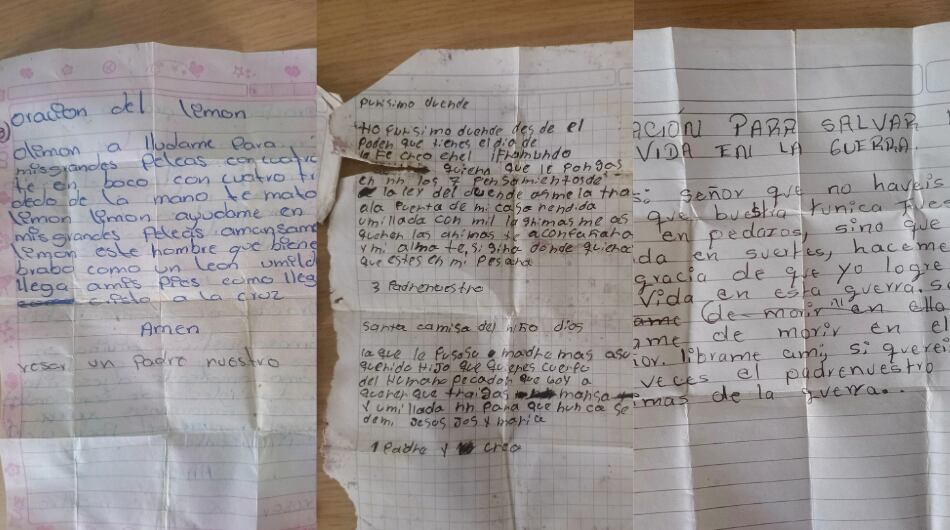 oracion del lemon
olemon a lludame para
misgrandes peleas con cuatro
te en boco con cuatro tr
dedo de la mano te mato
lemon lemon ayudame en
mis grandes peleas amansame
lemon este hombre que biene
brabo como un leon umeld
llega amis pies como lleg
a la cruz
Amen
resar un Padre nuestro
purisimo duende
purisimo duende des de el
poder que tienes el dia de
la fe creo enel
quiero que le pongas
en nn los 7 pensamientos de
la ley del duende
ala puerta de mi casa rendida
umillada con mil lagrimas me as
querer las animas
y mi alma
que estes en mi
3 padrenuestro
santa camisa del niño dios
la que le puso madre mas
querido hijo que quieres cuerpo
del Humano pecador que hoy a
querer que traigas mansa
y umillada nn para que nunca se
demi Jesus Jos y maria
1 Padre y creo
ACIÓN PARA SALVAR
VIDA EN LA GUERRA.
señor que no haveis
que buestra tunica fuer
en pedazos, sino que
da en suertes, haceme
gracia de que yo logre
vida en esta guerra. s
ame de morir ni en ella
ame de morir en el
ior. librame ami, si querei
veces el padrenuestro
imas de la guerra..